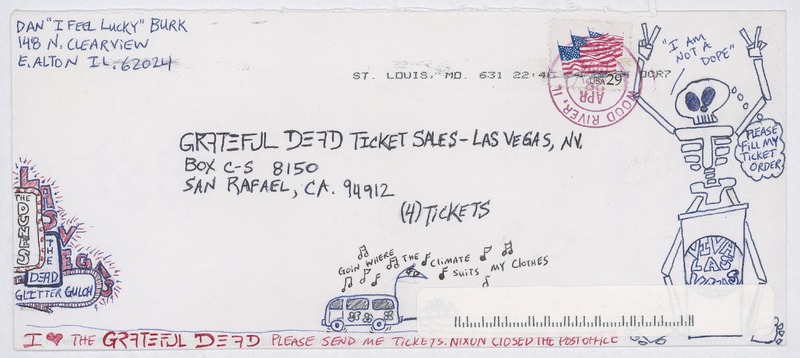 DAN "I FEEL LUCKY" BURK
148 N. CLEARVIEW
E. ALTON IL. 62024
ST. LOUIS, MO. 631 22:4
OCR?
USA 29
WOOD RIVER, IL
APR
"I AM
NOT A
DOPE"
PLEASE
FILL MY
TICKET
ORDER
GRATEFUL DEAD TICKET SALES - LAS VEGAS, NV.
BOX C-S 8150
SAN RAFAEL, CA. 94912
(4) TICKETS
LAS VEGAS
THE DUNES
THE
DEAD
GLITTER GULCH
GOIN WHERE THE CLIMATE SUITS MY CLOTHES
VIVA
LAS
I ♥ THE GRATEFUL DEAD PLEASE SEND ME TICKETS. NIXON CLOSED THE POST OFFICE